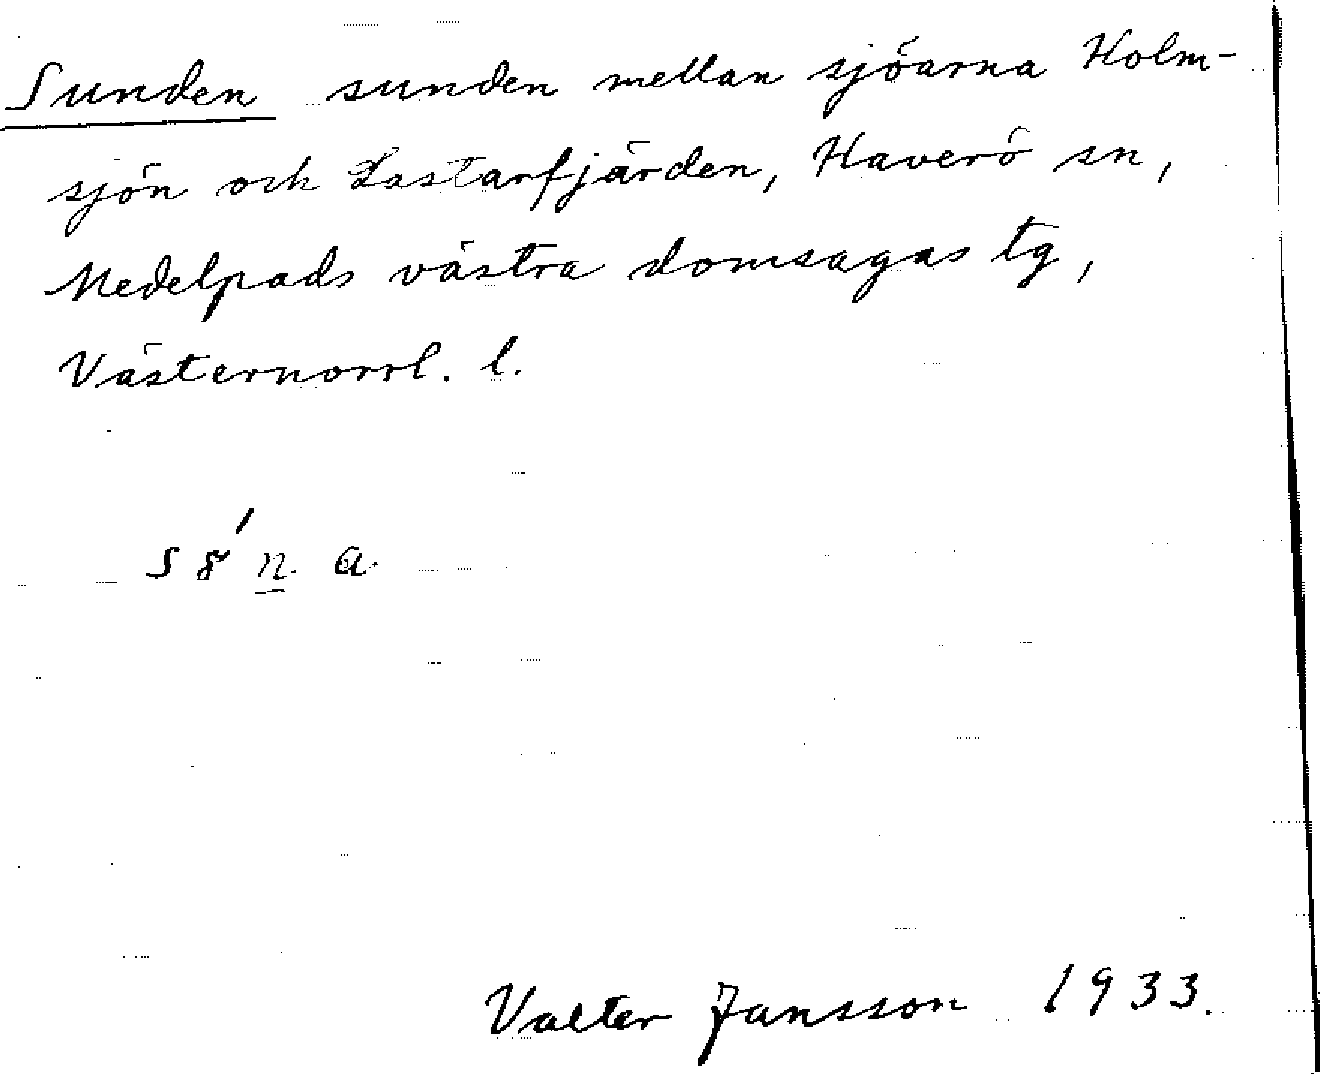 Sunden sunden mellan sjöarna Holm-
sjön och Lastarfjärden, Haverö sn,
Medelpads västra domsagas tg,
Västernorrl. l.
Valter Jansson 1933.